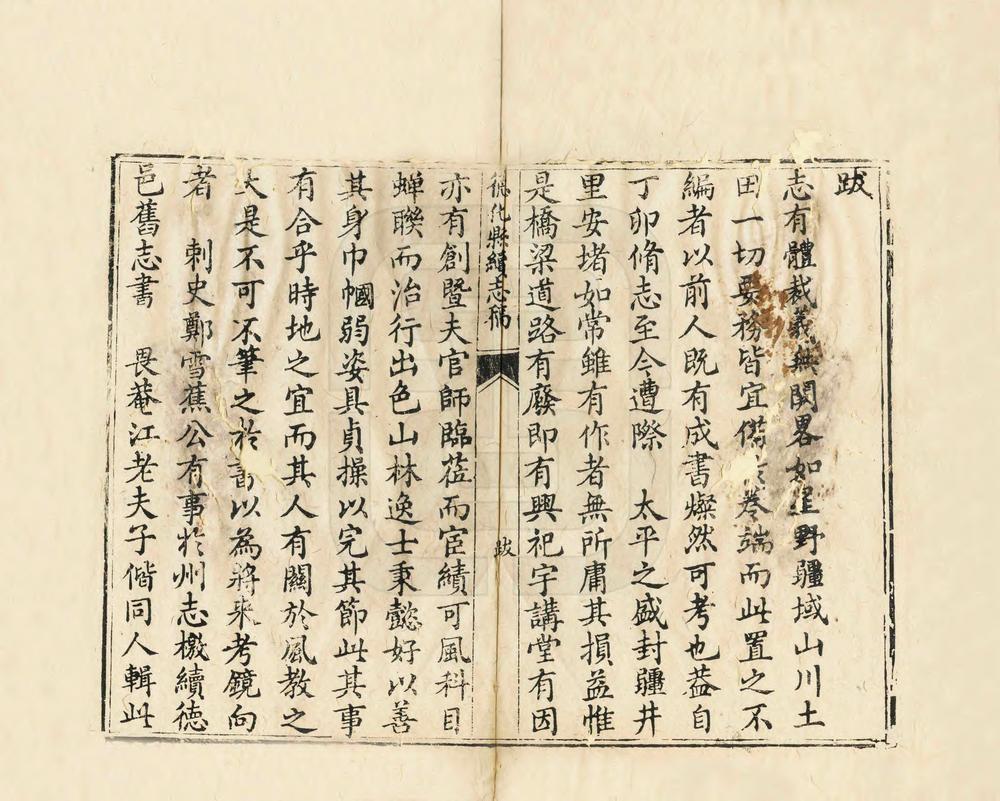 跋
志有體裁義無闕畧如星野疆域山川土
田一切要務皆宜備於卷端而此置之不
編者以前人既有成書燦然可考也葢自
丁卯脩志至今遭際　太平之盛封疆井
里安堵如常雖有作者無所庸其損益惟
是橋梁道路有廢即有興祀宇講堂有因
德化縣續志稿
跋
亦有創暨夫官師臨蒞而宦績可風科目
蟬聯而治行出色山林逸士秉懿好以善
其身巾幗弱姿具貞操以完其節此其事
有合乎時地之宜而其人有關於風教之
大是不可不筆之於書以為將來考鏡向
者　刺史鄭雪蕉公有事於州志檄續德
邑舊志書　畏菴江老夫子偕同人輯此